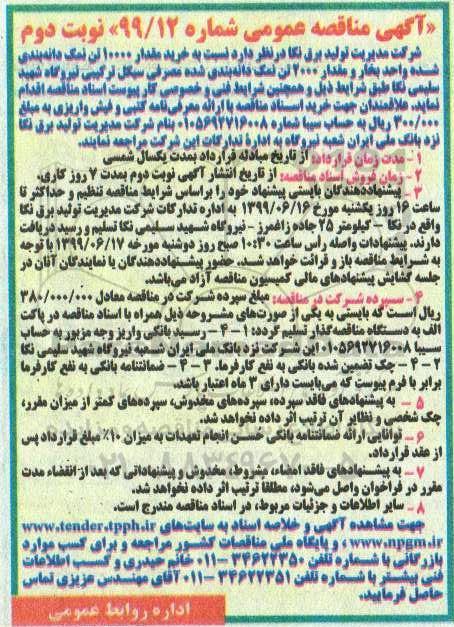 «آگهی مناقصه عمومی شماره ۹۹/۱۲» نوبت دوم
شرکت مدیریت تولید برق نکا درنظر دارد نسبت به خرید مقدار ۱۰۰۰۰ تن نمک دانه‌بندی
شده واحد بخار و مقدار ۲۰۰۰ تن نمک دانه‌بندی شده مصرفی سیکل ترکیبی نیروگاه شهید
سلیمی نکا طبق شرایط ذیل و همچنین شرایط فنی و خصوصی کار پیوست اسناد مناقصه اقدام
نماید. علاقمندان جهت خرید اسناد مناقصه با ارائه معرفی‌نامه کتبی و فیش واریزی به مبلغ
۳۰۰/۰۰۰ ریال به حساب سیبا شماره ۰۱۰۵۶۹۲۷۱۶۰۰۸ بنام شرکت مدیریت تولید برق نکا
نزد بانک ملی ایران شعبه نیروگاه به اداره تدارکات این شرکت مراجعه نمایند.
۱- مدت زمان قرارداد: از تاریخ مبادله قرارداد بمدت یکسال شمسی
۲- زمان فروش اسناد مناقصه: از تاریخ انتشار آگهی نوبت دوم بمدت ۷ روز کاری.
۳- پیشنهاددهندگان بایستی پیشنهاد خود را براساس شرایط مناقصه تنظیم و حداکثر تا
ساعت ۱۶ روز یکشنبه مورخ ۱۳۹۹/۰۶/۱۶ به اداره تدارکات شرکت مدیریت تولید برق نکا
واقع در نکا - کیلومتر ۲۵ جاده زاغمرز - نیروگاه شهید سلیمی نکا تسلیم و رسید دریافت
دارند. پیشنهادات واصله رأس ساعت ۱۰:۳۰ صبح روز دوشنبه مورخه ۱۳۹۹/۰۶/۱۷ با توجه
به شرایط مناقصه باز و قرائت خواهد شد. حضور پیشنهاددهندگان یا نمایندگان آنان در
جلسه گشایش پیشنهادهای مالی کمیسیون مناقصه آزاد می‌باشد.
۴- سپرده شرکت در مناقصه: مبلغ سپرده شرکت در مناقصه معادل ۳۸۰/۰۰۰/۰۰۰
ریال است که بایستی به یکی از صورت‌های مشروحه ذیل همراه با اسناد مناقصه در پاکت
الف به دستگاه مناقصه‌گذار تسلیم گردد: ۱-۴- رسید بانکی واریز وجه مزبور به حساب
سیبا ۰۱۰۵۶۹۲۷۱۶۰۰۸ این شرکت نزد بانک ملی ایران شعبه نیروگاه شهید سلیمی نکا
۲-۴- چک تضمین شده بانکی به نفع کارفرما. ۳-۴- ضمانتنامه بانکی به نفع کارفرما
برابر با فرم پیوست که می‌بایست دارای ۳ ماه اعتبار باشد.
۵- به پیشنهادهای فاقد سپرده، سپرده‌های مخدوش، سپرده‌های کمتر از میزان مقرر،
چک شخصی و نظایر آن ترتیب اثر داده نخواهد شد.
۶- توانایی ارائه ضمانتنامه بانکی حسن انجام تعهدات به میزان ۱۰٪ مبلغ قرارداد پس
از عقد قرارداد.
۷- به پیشنهادهای فاقد امضاء، مشروط، مخدوش و پیشنهاداتی که بعد از انقضاء مدت
مقرر در فراخوان واصل می‌شود، مطلقا ترتیب اثر داده نخواهد شد.
۸- سایر اطلاعات و جزئیات مربوط، در اسناد مناقصه مندرج است.
جهت مشاهده آگهی و خلاصه اسناد به سایت‌های www.tender.tpph.ir
www.npgm.ir، و پایگاه ملی مناقصات کشور مراجعه و برای کسب موارد
بازرگانی با شماره تلفن ۳۴۶۲۲۳۵۰-۰۱۱ خانم حیدری و کسب اطلاعات
فنی بیشتر با شماره تلفن ۳۴۶۲۲۲۵۱-۰۱۱ آقای مهندس عزیزی تماس
حاصل فرمایید.
اداره روابط عمومی